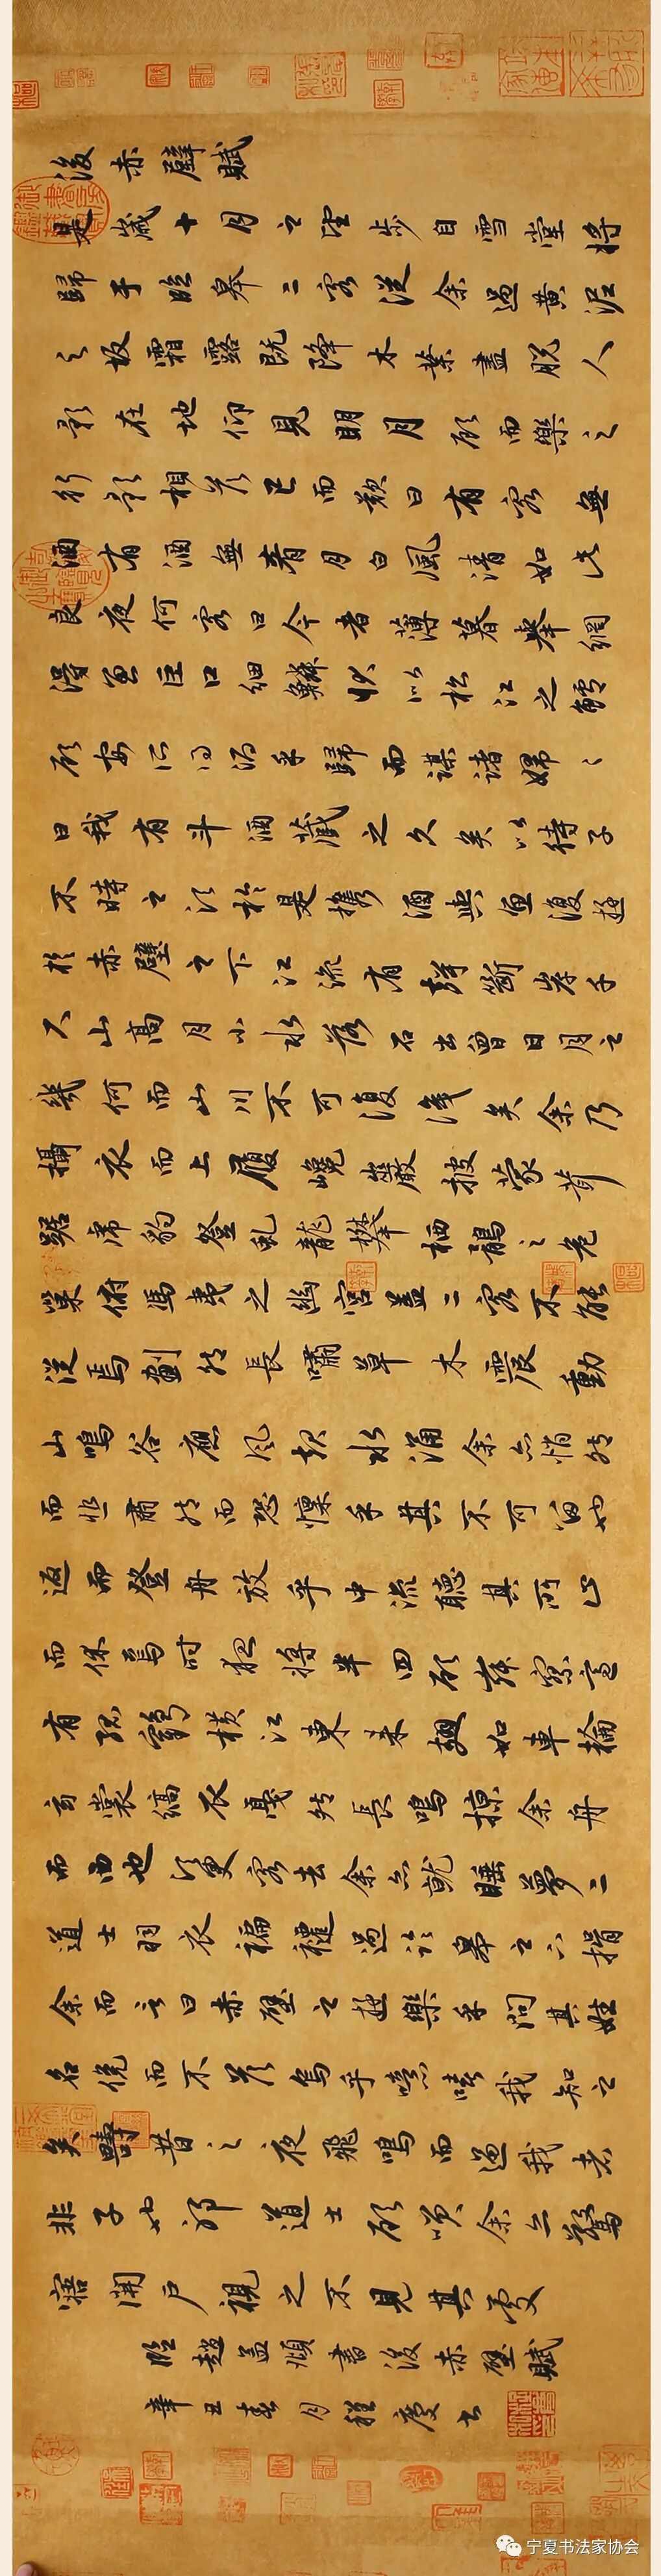 後赤壁賦
是歲十月之望步自雪堂將
歸于臨皋二客從余過黃泥
之坂霜露既降木葉盡脫人
影在地仰見明月顧而樂之
行歌相答已而歎曰有客無
酒有酒無肴月白風清如此
良夜何客曰今者薄暮舉網
得魚巨口細鱗狀似松江之鱸
顧安所得酒乎歸而謀諸婦〻
曰我有斗酒藏之久矣以待子
不時之須於是攜酒與魚復遊
於赤壁之下江流有聲斷岸千
尺山高月小水落石出曾日月之
幾何而山川不可復識矣余乃
攝衣而上履巉巖披蒙茸
踞虎豹登虬龍攀栖鶻之危
巢俯馮夷之幽宮蓋二客不能
從焉劃然長嘯草木震動
山鳴谷應風起水涌余亦悄然
而悲肅然而恐懍乎其不可留也
返而登舟放乎中流聽其所止
而休焉時夜將半四顧寂寥適
有孤鶴橫江東來翅如車輪
玄裳縞衣戛然長鳴掠余舟
而西也須臾客去余亦就睡夢二
道士羽衣褊褼過臨皋之下揖
余而言曰赤壁之遊樂乎問其姓
名俛而不答嗚乎噫嘻我知之
矣疇昔之夜飛鳴而過我者
非子也耶道士顧笑余亦驚
寤開戶視之不見其處
臨趙孟頫書後赤壁賦
辛丑春月程慶書
宁夏书法家协会